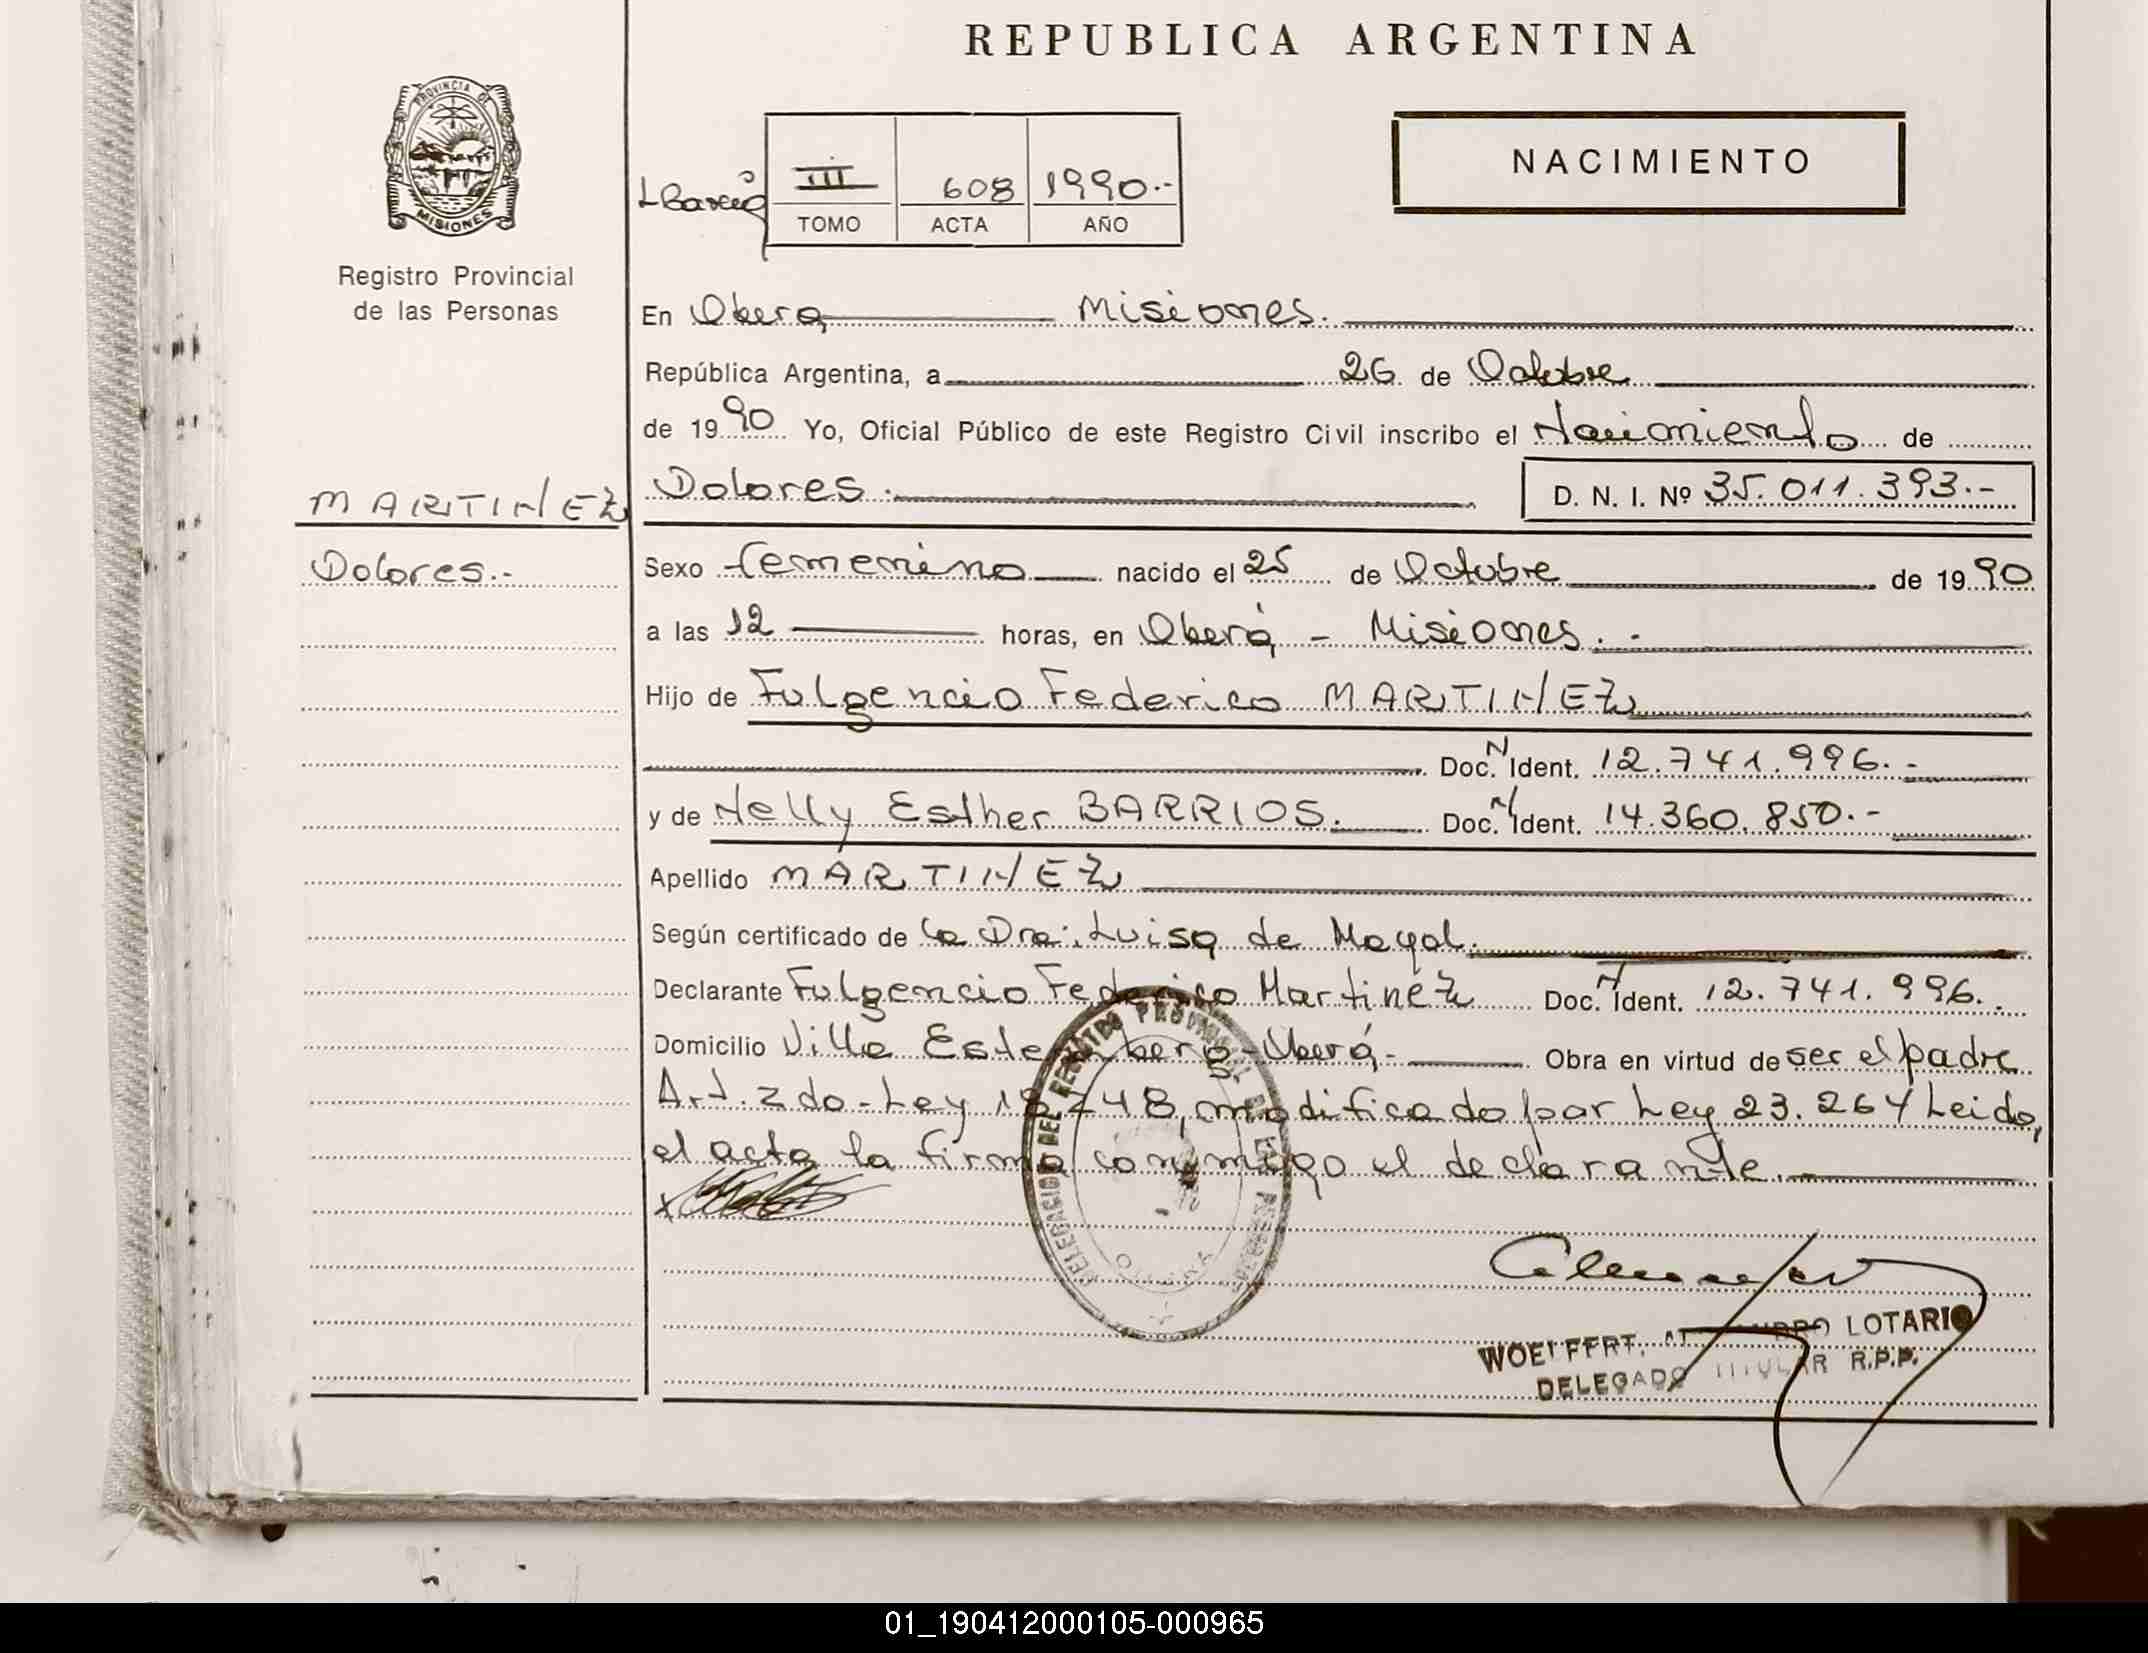 REPUBLICA ARGENTINA
PROVINCIA DE
MISIONES
Registro Provincial
de las Personas
III 608 1990.-
TOMO ACTA AÑO
NACIMIENTO
En Oberá Misiones.
República Argentina, a 26 de Octubre
de 1990 Yo, Oficial Público de este Registro Civil inscribo el Nacimiento de
Dolores. D. N. I. Nº 35.011.393.-
MARTINEZ
Dolores.-
Sexo femenino nacido el 25 de Octubre de 1990
a las 12 horas, en Oberá - Misiones.-
Hijo de Fulgencio Federico MARTINEZ
Doc. N Ident. 12.741.996.-
y de Nelly Esther BARRIOS. Doc. N Ident. 14.360.850.-
Apellido MARTINEZ
Según certificado de la Dra. Luisa de Mayol.
Declarante Fulgencio Federico Martinez Doc. N Ident. 12.741.996.
Domicilio Villa Oberá- Obra en virtud de ser el padre
Art. 2do-Ley 18248, modificado por Ley 23.264 Leido,
el acta la firma conmigo el declarante.-
DELEGACION DEL REGISTRO PROVINCIAL DE LAS PERSONAS
WOELFFERT, LOTARIO
DELEGADO TITULAR R.P.P.
01_190412000105-000965